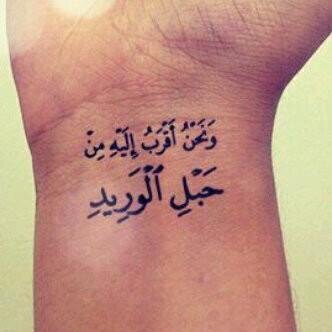 وَنَحْنُ أَقْرَبُ إِلَيْهِ مِنْ
حَبْلِ ٱلْوَرِيدِ